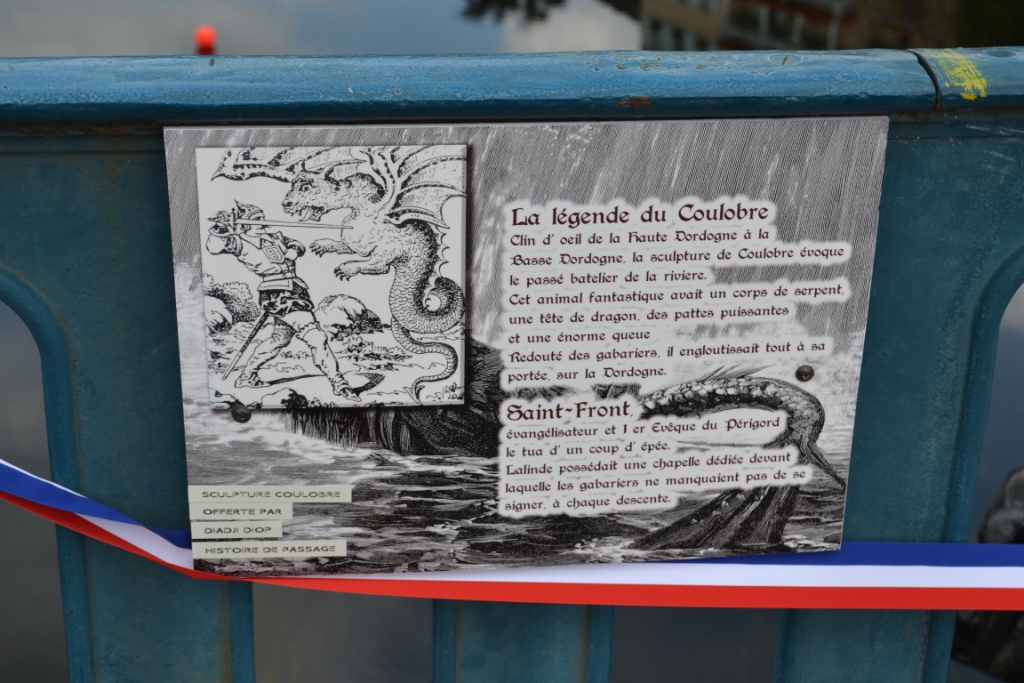 La légende du Coulobre
Clin d' oeil de la Haute Dordogne à la
Basse Dordogne, la sculpture de Coulobre évoque
le passé batelier de la riviere.
Cet animal fantastique avait un corps de serpent,
une tête de dragon, des pattes puissantes
et une énorme queue
Redouté des gabariers, il engloutissait tout à sa
portée, sur la Dordogne.
Saint-Front,
évangélisateur et 1 er Evêque du Périgord
le tua d' un coup d' épée.
Lalinde possédait une chapelle dédiée devant
laquelle les gabariers ne manquaient pas de se
signer, à chaque descente.
SCULPTURE COULOBRE
OFFERTE PAR
DIADJI DIOP
HISTOIRE DE PASSAGE